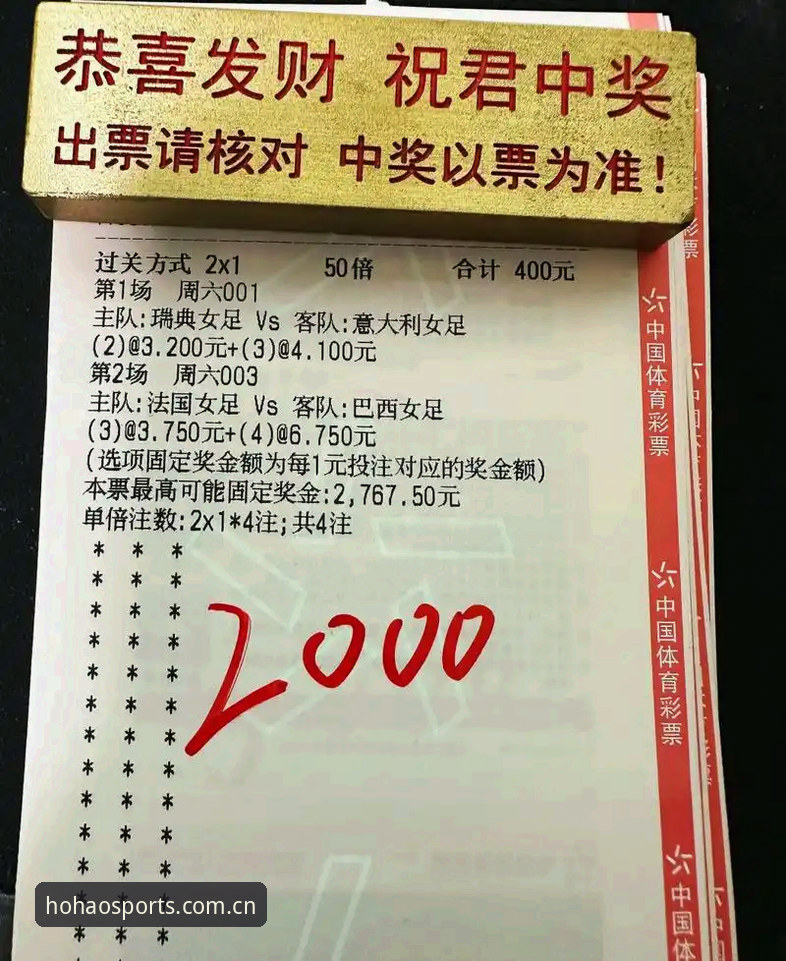 恭喜发财 祝君中奖
出票请核对 中奖以票为准!
过关方式 2x1 50倍 合计 400元
第1场 周六001
主队:瑞典女足 Vs 客队:意大利女足
(2)@3.200元+(3)@4.100元
第2场 周六003
主队:法国女足 Vs 客队:巴西女足
(3)@3.750元+(4)@6.750元
(选项固定奖金额为每1元投注对应的奖金额)
本票最高可能固定奖金:2,767.50元
单倍注数:2x1*4注;共4注
* * *
* * *
* * *
* * *
* * *
* * *
* * *
* * *
* * *
* * *
* * *
* * *
* * *
2000
中国体育彩票
中国体育彩票
中国体
hohaosports.com.cn